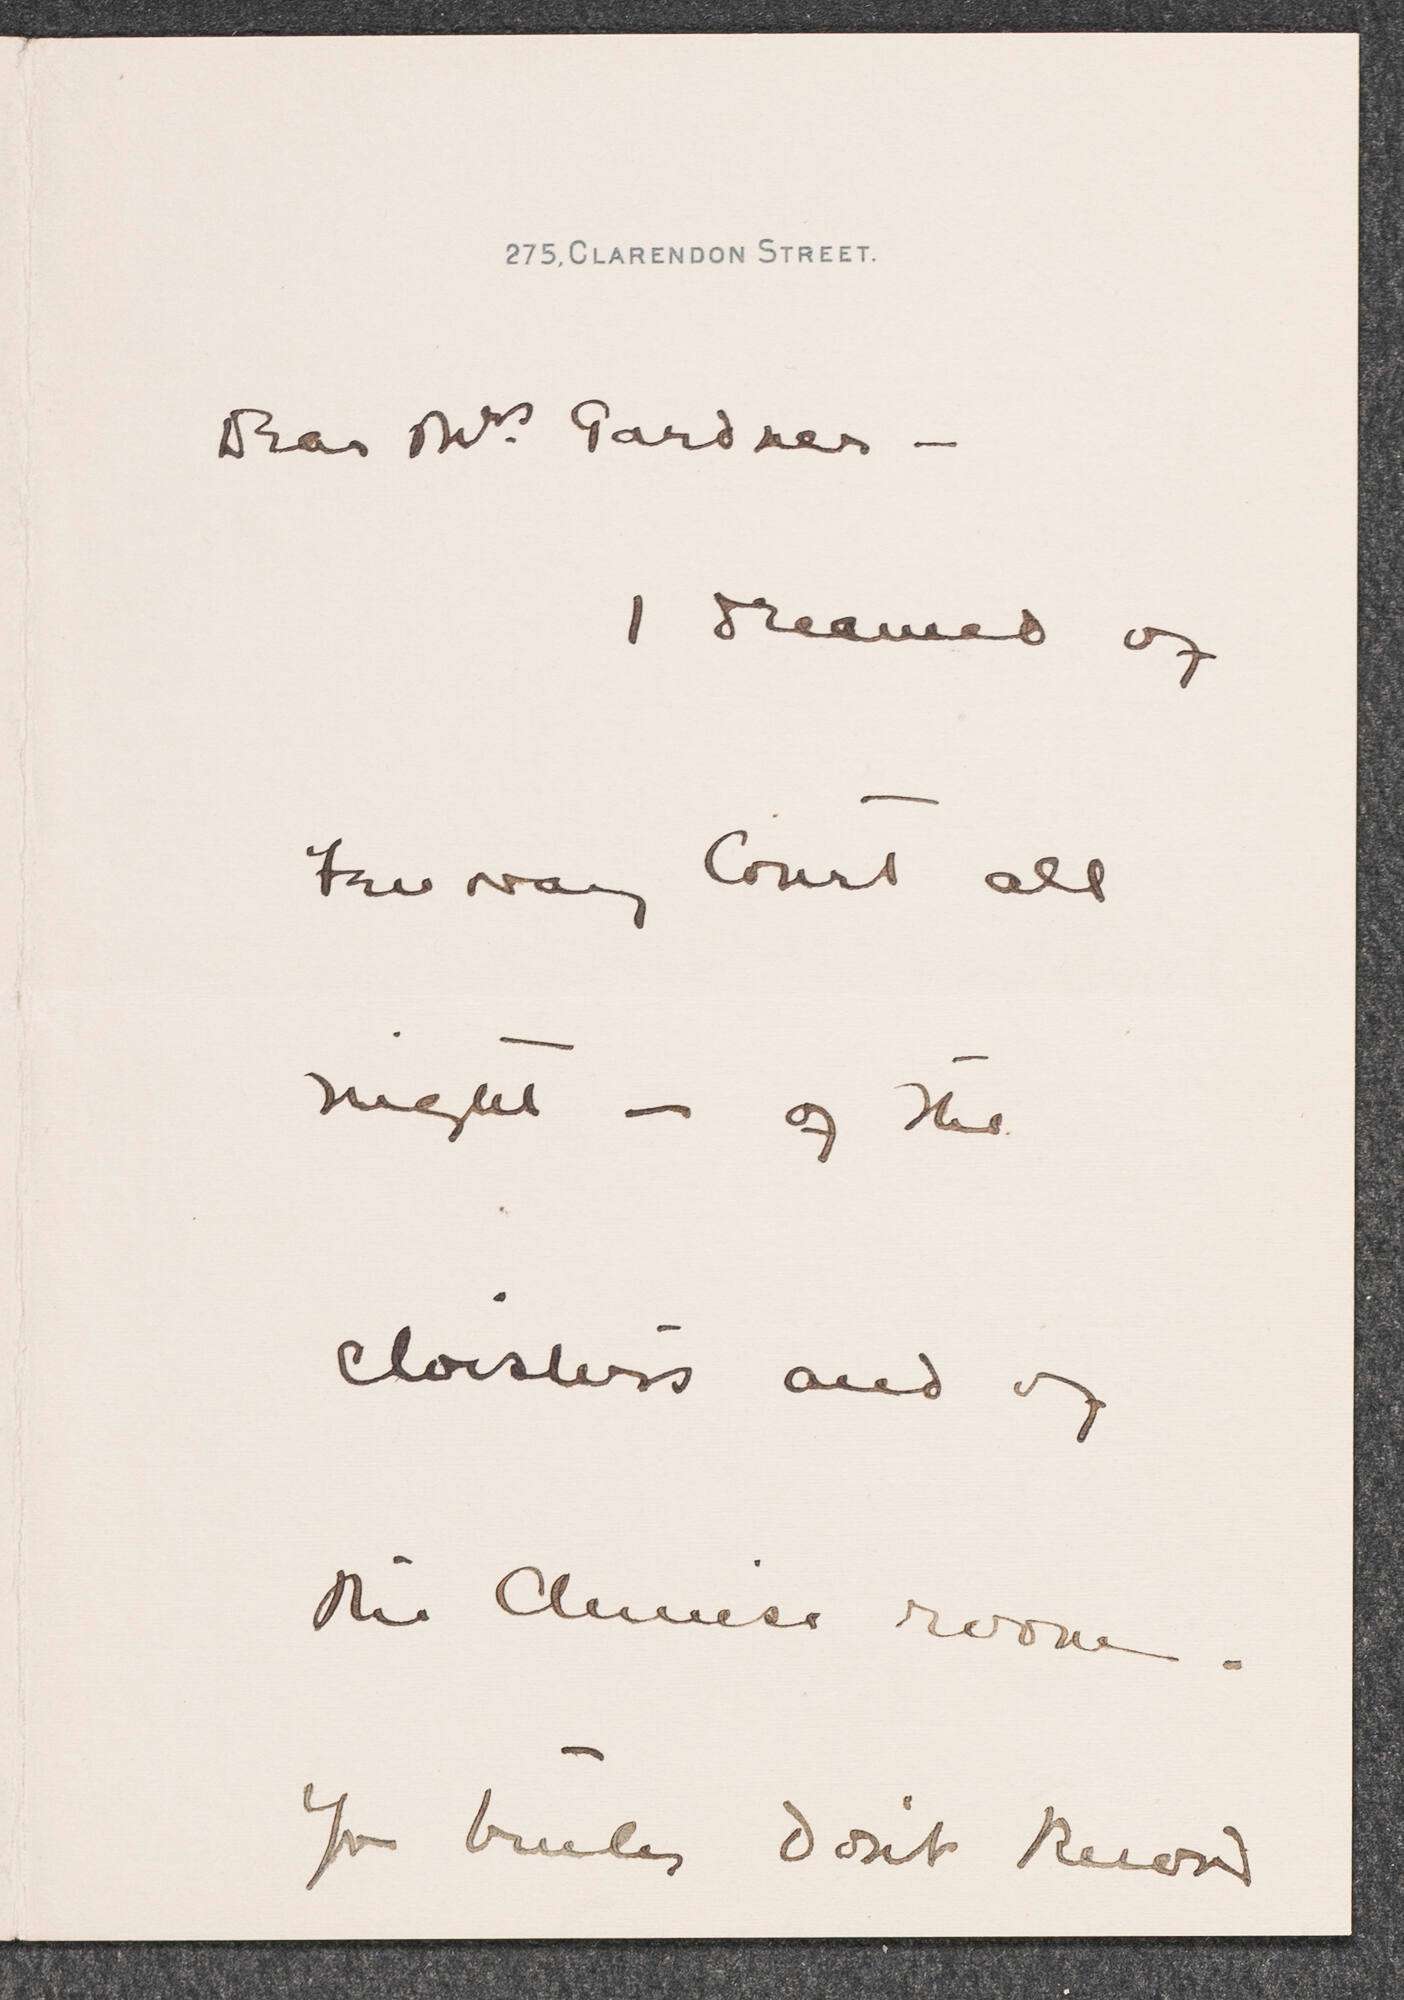 275, CLARENDON STREET.
Dear Mrs. Gardner —
I dreamed of
Fenway Court all
night — of the
cloisters and of
the Chinese room.
You don't know